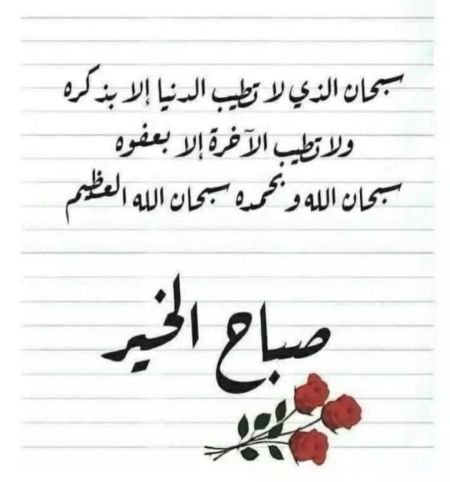 سبحان الذي لا تطيب الدنيا إلا بذكره
ولا تطيب الآخرة إلا بعفوه
سبحان الله وبحمده سبحان الله العظيم
صباح الخير